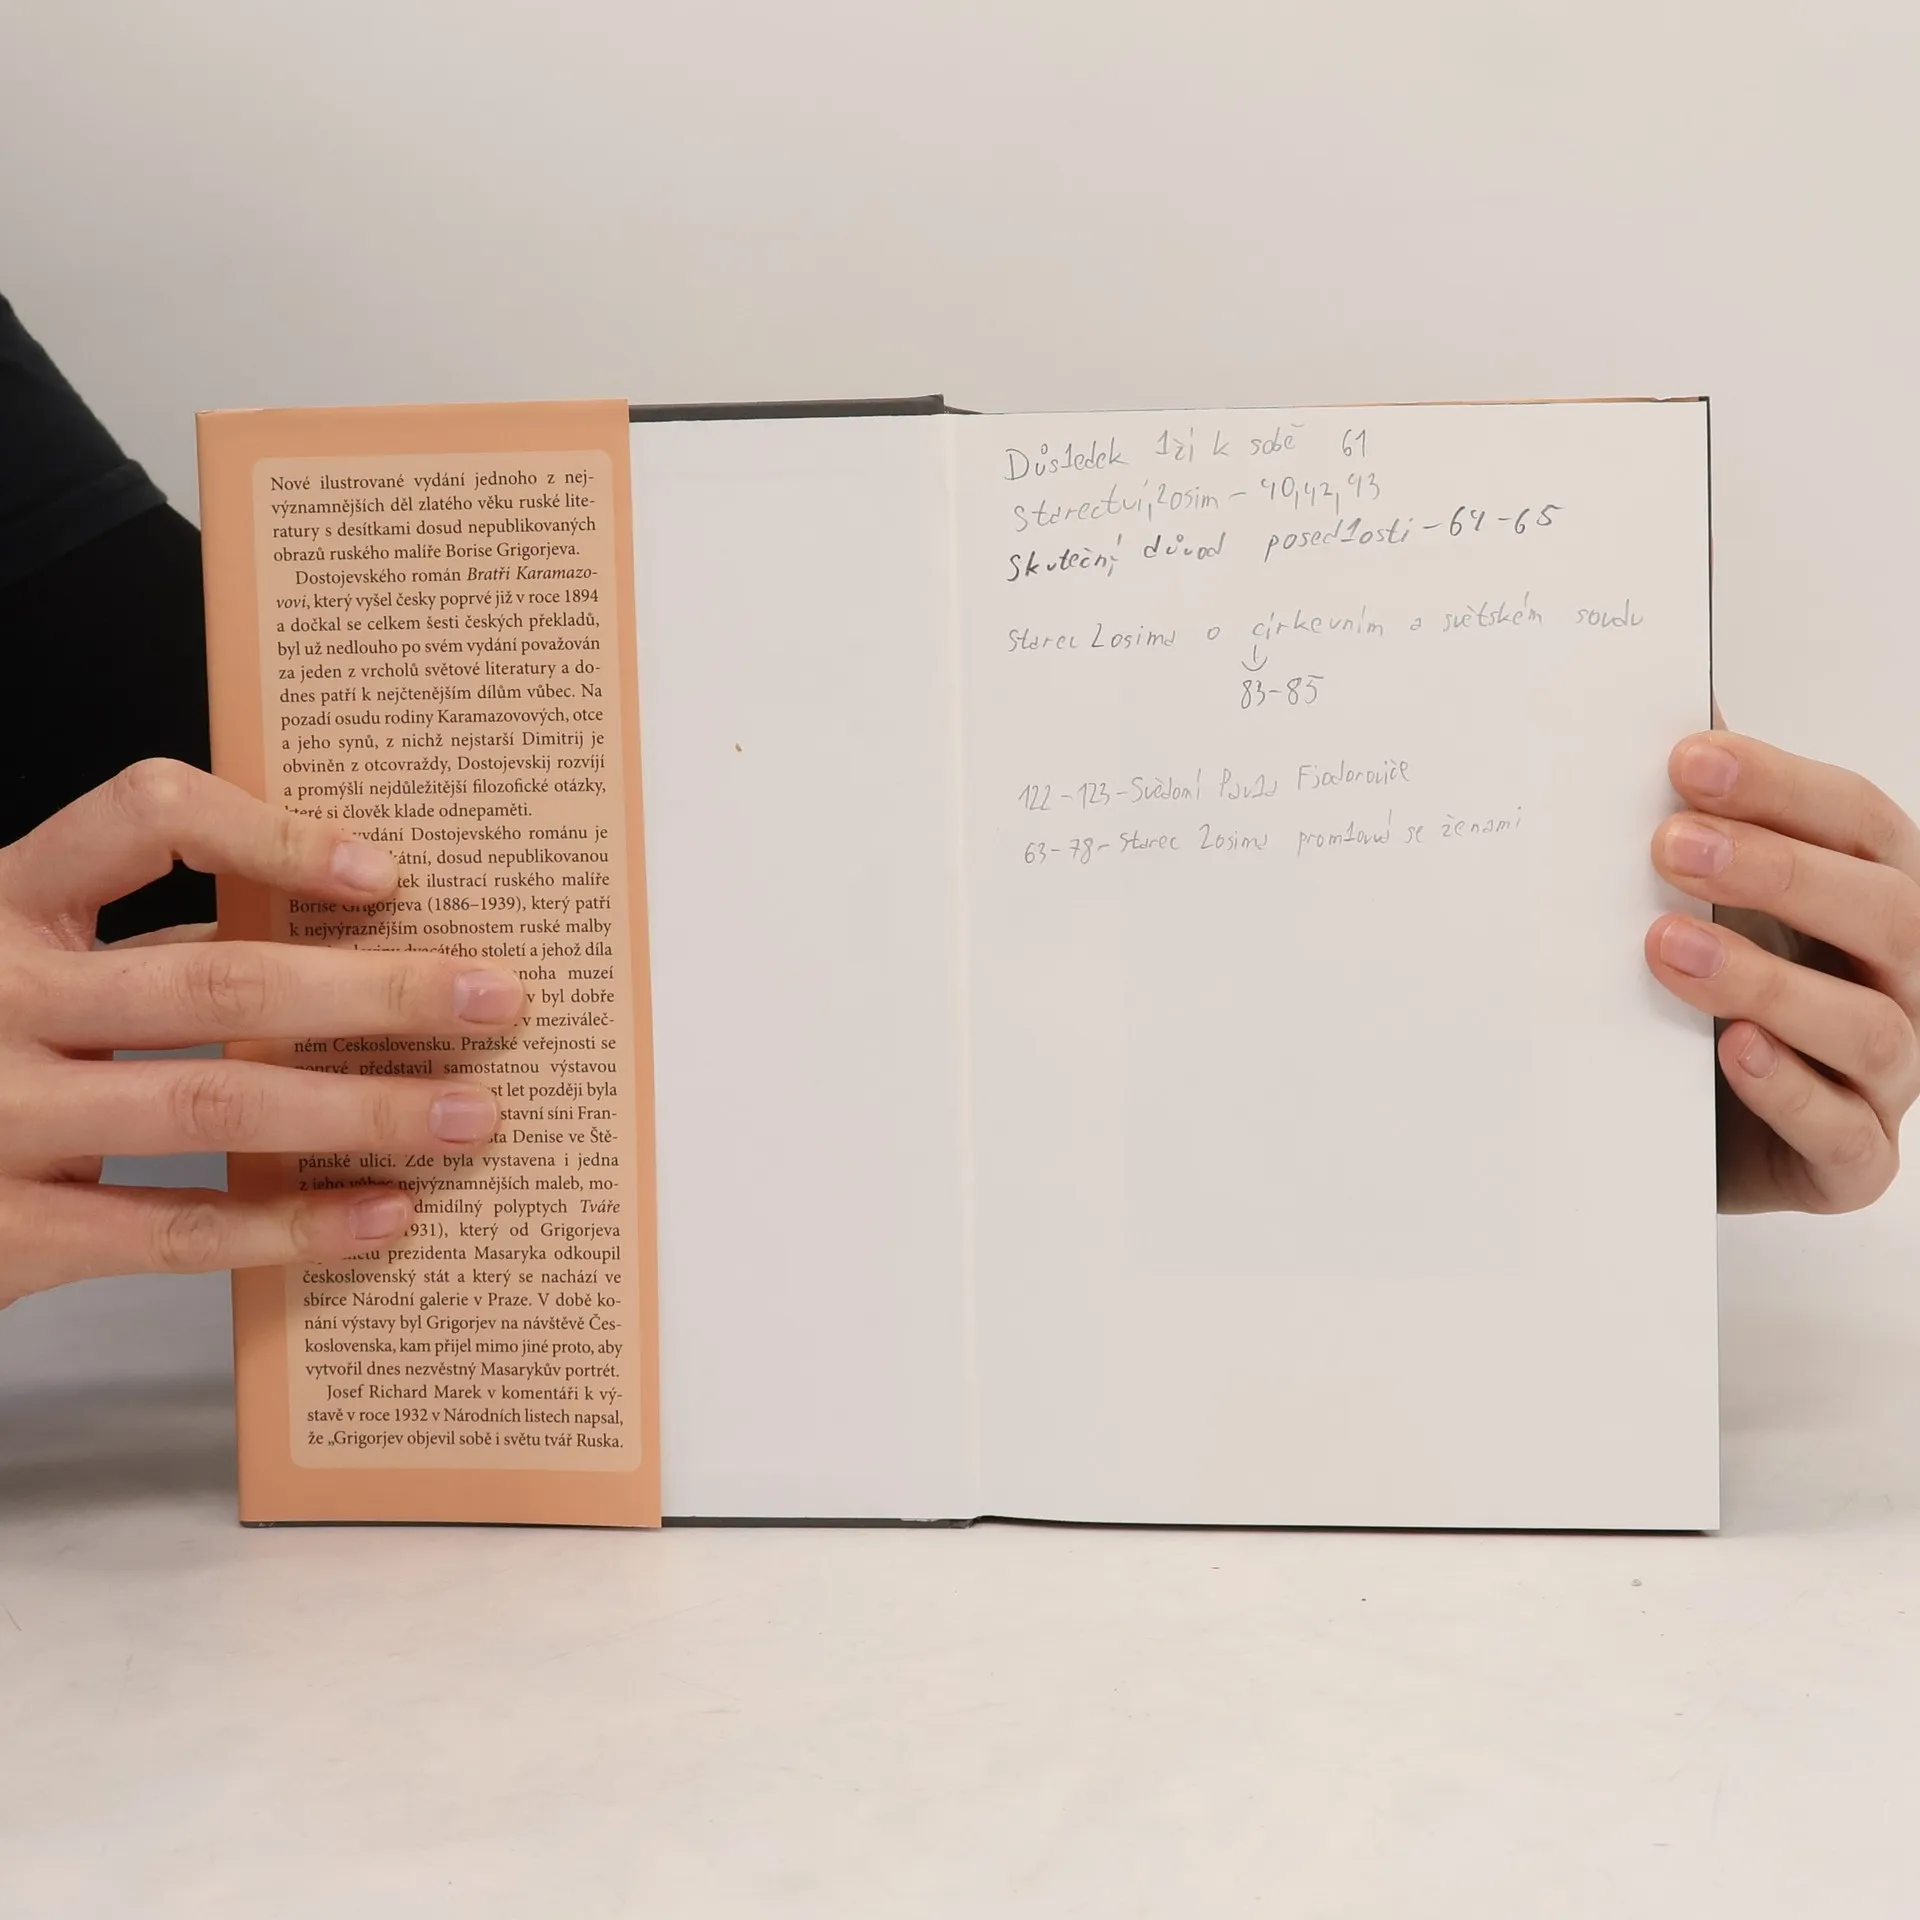 Nové ilustrované vydání jednoho z nej-
významnějších děl zlatého věku ruské lite-
ratury s desítkami dosud nepublikovaných
obrazů ruského malíře Borise Grigorjeva.
Dostojevského román Bratři Karamazo-
vovi, který vyšel česky poprvé již v roce 1894
a dočkal se celkem šesti českých překladů,
byl už nedlouho po svém vydání považován
za jeden z vrcholů světové literatury a do-
dnes patří k nejčtenějším dílům vůbec. Na
pozadí osudu rodiny Karamazovových, otce
a jeho synů, z nichž nejstarší Dimitrij je
obviněn z otcovraždy, Dostojevskij rozvíjí
a promýšlí nejdůležitější filozofické otázky,
které si člověk klade odnepaměti.
vydání Dostojevského románu je
dosud nepublikovanou
ilustrací ruského malíře
Borise Grigorjeva (1886–1939), který patří
k nejvýraznějším osobnostem ruské malby
století a jehož díla
muzeí
v byl dobře
v meziváleč-
ném Československu. Pražské veřejnosti se
poprvé představil samostatnou výstavou
let později byla
stavní síni Fran-
Denise ve Ště-
pánské ulici. Zde byla vystavena i jedna
z jeho vůbec nejvýznamnějších maleb, mo-
polyptych Tváře
1931), který od Grigorjeva
prezidenta Masaryka odkoupil
československý stát a který se nachází ve
sbírce Národní galerie v Praze. V době ko-
nání výstavy byl Grigorjev na návštěvě Čes-
koslovenska, kam přijel mimo jiné proto, aby
vytvořil dnes nezvěstný Masarykův portrét.
Josef Richard Marek v komentáři k vý-
stavě v roce 1932 v Národních listech napsal,
že „Grigorjev objevil sobě i světu tvář Ruska.
Důsledek lži k sobě 61
Starectví, Zosim – 40, 42, 43
Skuteční důvod posedlosti – 64 – 65
Starec Zosima o církevním a světském soudu
83–85
122 – 123 – Svědomí Pavla Fjodoroviče
63 – 78 – Starec Zosima promlouvá se ženami